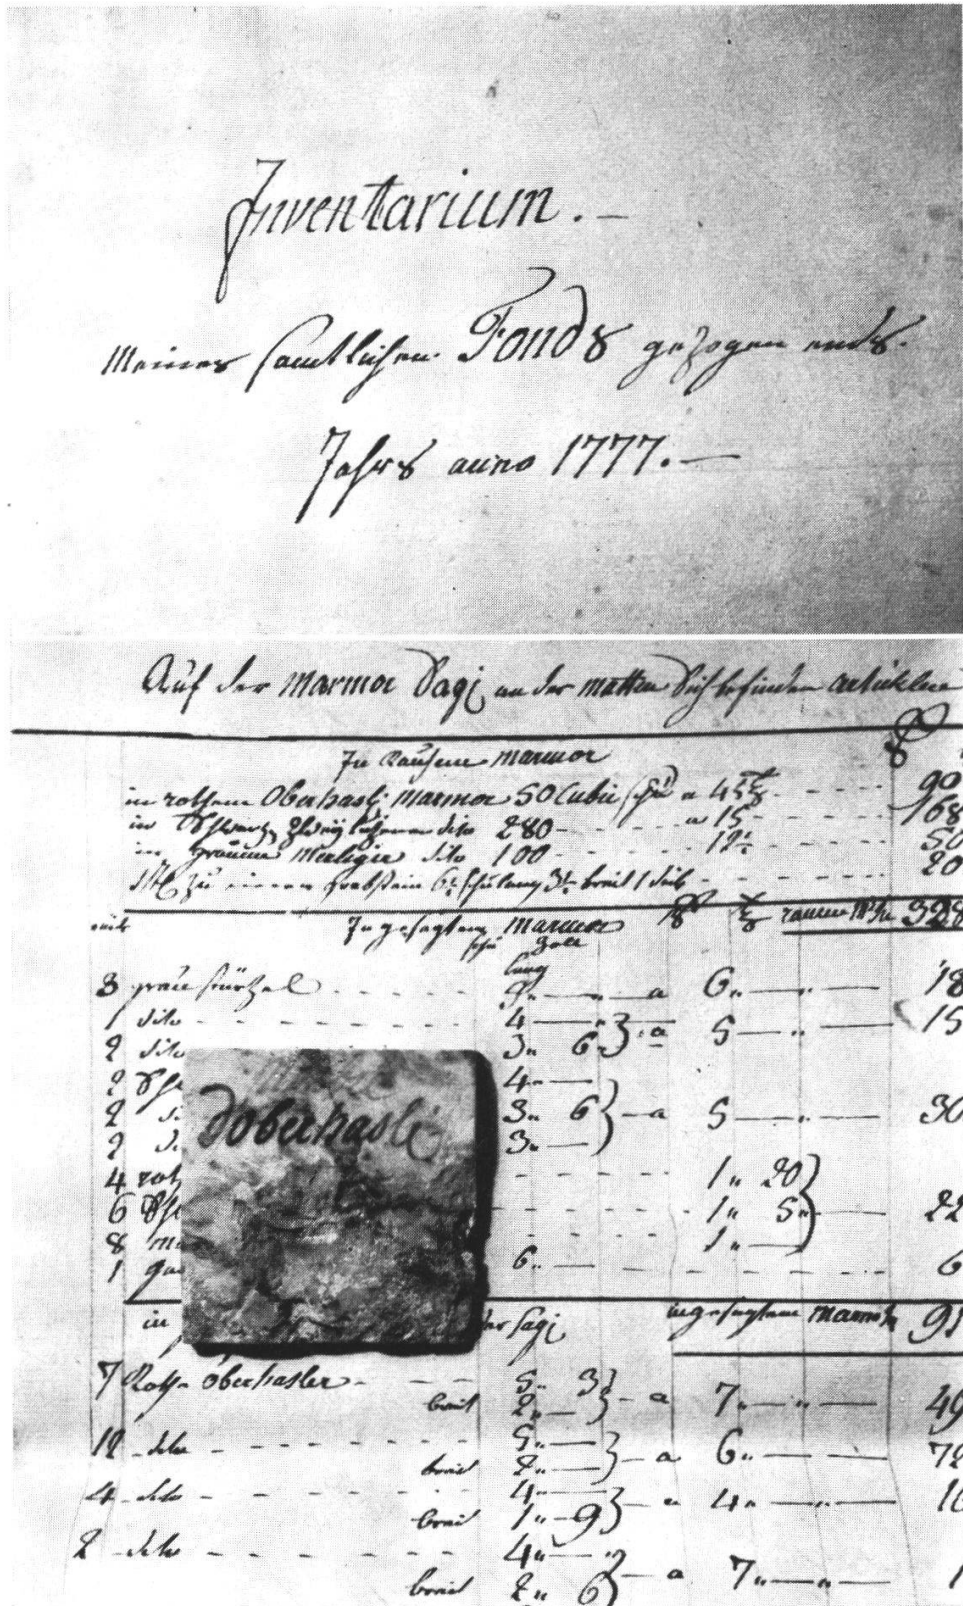 Inventarium. —
Meines samtlichen Fonds gezogen ends.
Jahrs anno 1777. —
Auf der Marmor Sagj an der Matten Sich befinden Articklen
In Rauhem Marmor
in rothem Oberhaslj Marmor 50 Cubic a 45 90
in Schwartz dito 280 a 15 168
in Grauem Merligen dito 100 12½ 50
Stk zu einem Grabstein 6½ Schu lang 3½ breit 1 dik 20
rauem 328
In gesagtem Marmor
Schu Zoll
lang
3 grau 9 " — " a 6 " — " — 18
1 dito 4 — "
2 dito 3 " 6 } a 5 — " — 15
2 Sch 4 " —
2 3 " 6 } a 5 — " — 30
2 3 " —
4 rot 1 " 20
6 Sch 1 " 5 " } 22
8 1 " —
1 6 " — 6
in der Sagj in gesagtem Marmor 91
7 Roth Oberhasler 5 " 3
breit 2 " — } a 7 " — " — 49
12 dito 5 " —
breit 2 " — } a 6 " — " — 72
4 dito 4 " —
breit 1 " 9 } a 4 " — " — 16
2 dito 4 " — "
breit 2 " 6 } a 7 " — " — 1
Doberhaslj